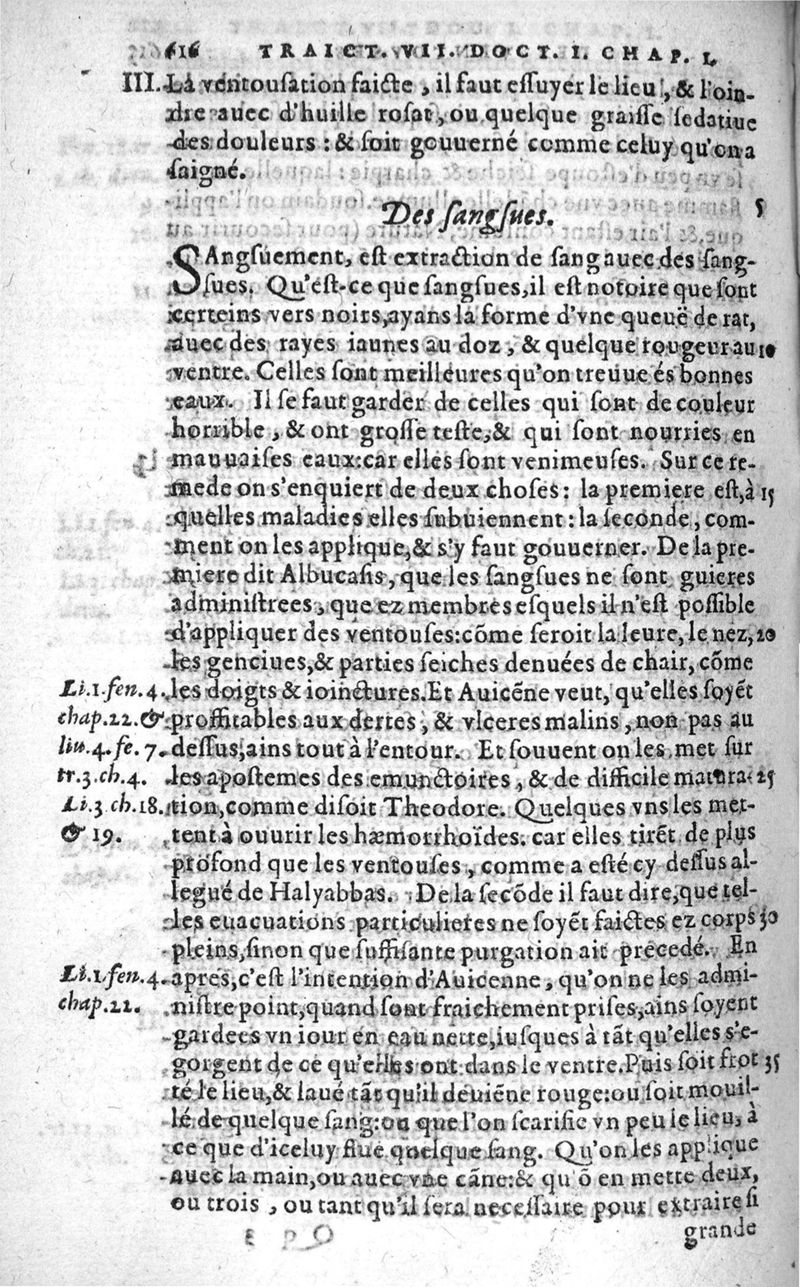 616 TRAICT. VII. DOCT. I. CHAP. I.
III. La ventouſation faicte, il faut eſſuyer le lieu, & l'oin-
dre auec d'huille roſat, ou quelque graiſſe ſedatiue
des douleurs : & ſoit gouuerné comme celuy qu'on a
ſaigné.
Des ſangſues. 5
SAngſuement, eſt extraction de ſang auec des ſang-
ſues. Qu'eſt-ce que ſangſues, il eſt notoire que ſont
certeins vers noirs, ayans la forme d'vne queuë de rat,
auec des rayes iaunes au doz, & quelque rougeur au 10
ventre. Celles ſont meilleures qu'on treuue és bonnes
eaux. Il ſe faut garder de celles qui ſont de couleur
horrible, & ont groſſe teſte, & qui ſont nourries en
mauuaiſes eaux: car elles ſont venimeuſes. Sur ce re-
mede on s'enquiert de deux choſes: la premiere eſt, à 15
quelles maladies elles ſubuiennent: la ſeconde, com-
ment on les applique, & s'y faut gouuerner. De la pre-
miere dit Albucaſis, que les ſangſues ne ſont guieres
adminiſtrees, que ez membres eſquels il n'eſt poſſible
d'appliquer des ventouſes: cõme ſeroit la leure, le nez, 20
les genciues, & parties ſeiches denuées de chair, cõme
Li.1. fen. 4. les doigts & ioinctures. Et Auicẽne veut, qu'elles ſoyẽt
chap.22. & proffitables aux dertes, & vlceres malins, non pas au
liu.4. fe. 7. deſſus, ains tout à l'entour. Et ſouuent on les met ſur
tr.3. ch.4. les apoſtemes des emunctoires, & de difficile matura- 25
Li.3 ch.18. tion, comme diſoit Theodore. Quelques vns les met-
& 19. tent à ouurir les hæmorrhoïdes. car elles tirẽt de plus
profond que les ventouſes, comme a eſté cy deſſus al-
legué de Halyabbas. De la ſecõde il faut dire, que tel-
les euacuations particulieres ne ſoyẽt faictes ez corps 30
pleins, ſinon que ſuffiſante purgation ait precedé. En
Li.1. fen. 4. apres, c'eſt l'intention d'Auicenne, qu'on ne les admi-
chap.22. niſtre point, quand ſont fraichement priſes, ains ſoyent
gardees vn iour en eau nette, iuſques à tãt qu'elles s'e-
gorgent de ce qu'elles ont dans le ventre. Puis ſoit frot 35
té le lieu, & laué tãt qu'il deuiẽne rouge: ou ſoit mouil-
lé de quelque ſang: ou que l'on ſcarifie vn peu le lieu, à
ce que d'iceluy flue quelque ſang. Qu'on les applique
auec la main, ou auec vne cãne: & qu'õ en mette deux,
ou trois, ou tant qu'il ſera neceſſaire pour extraire ſi
grande